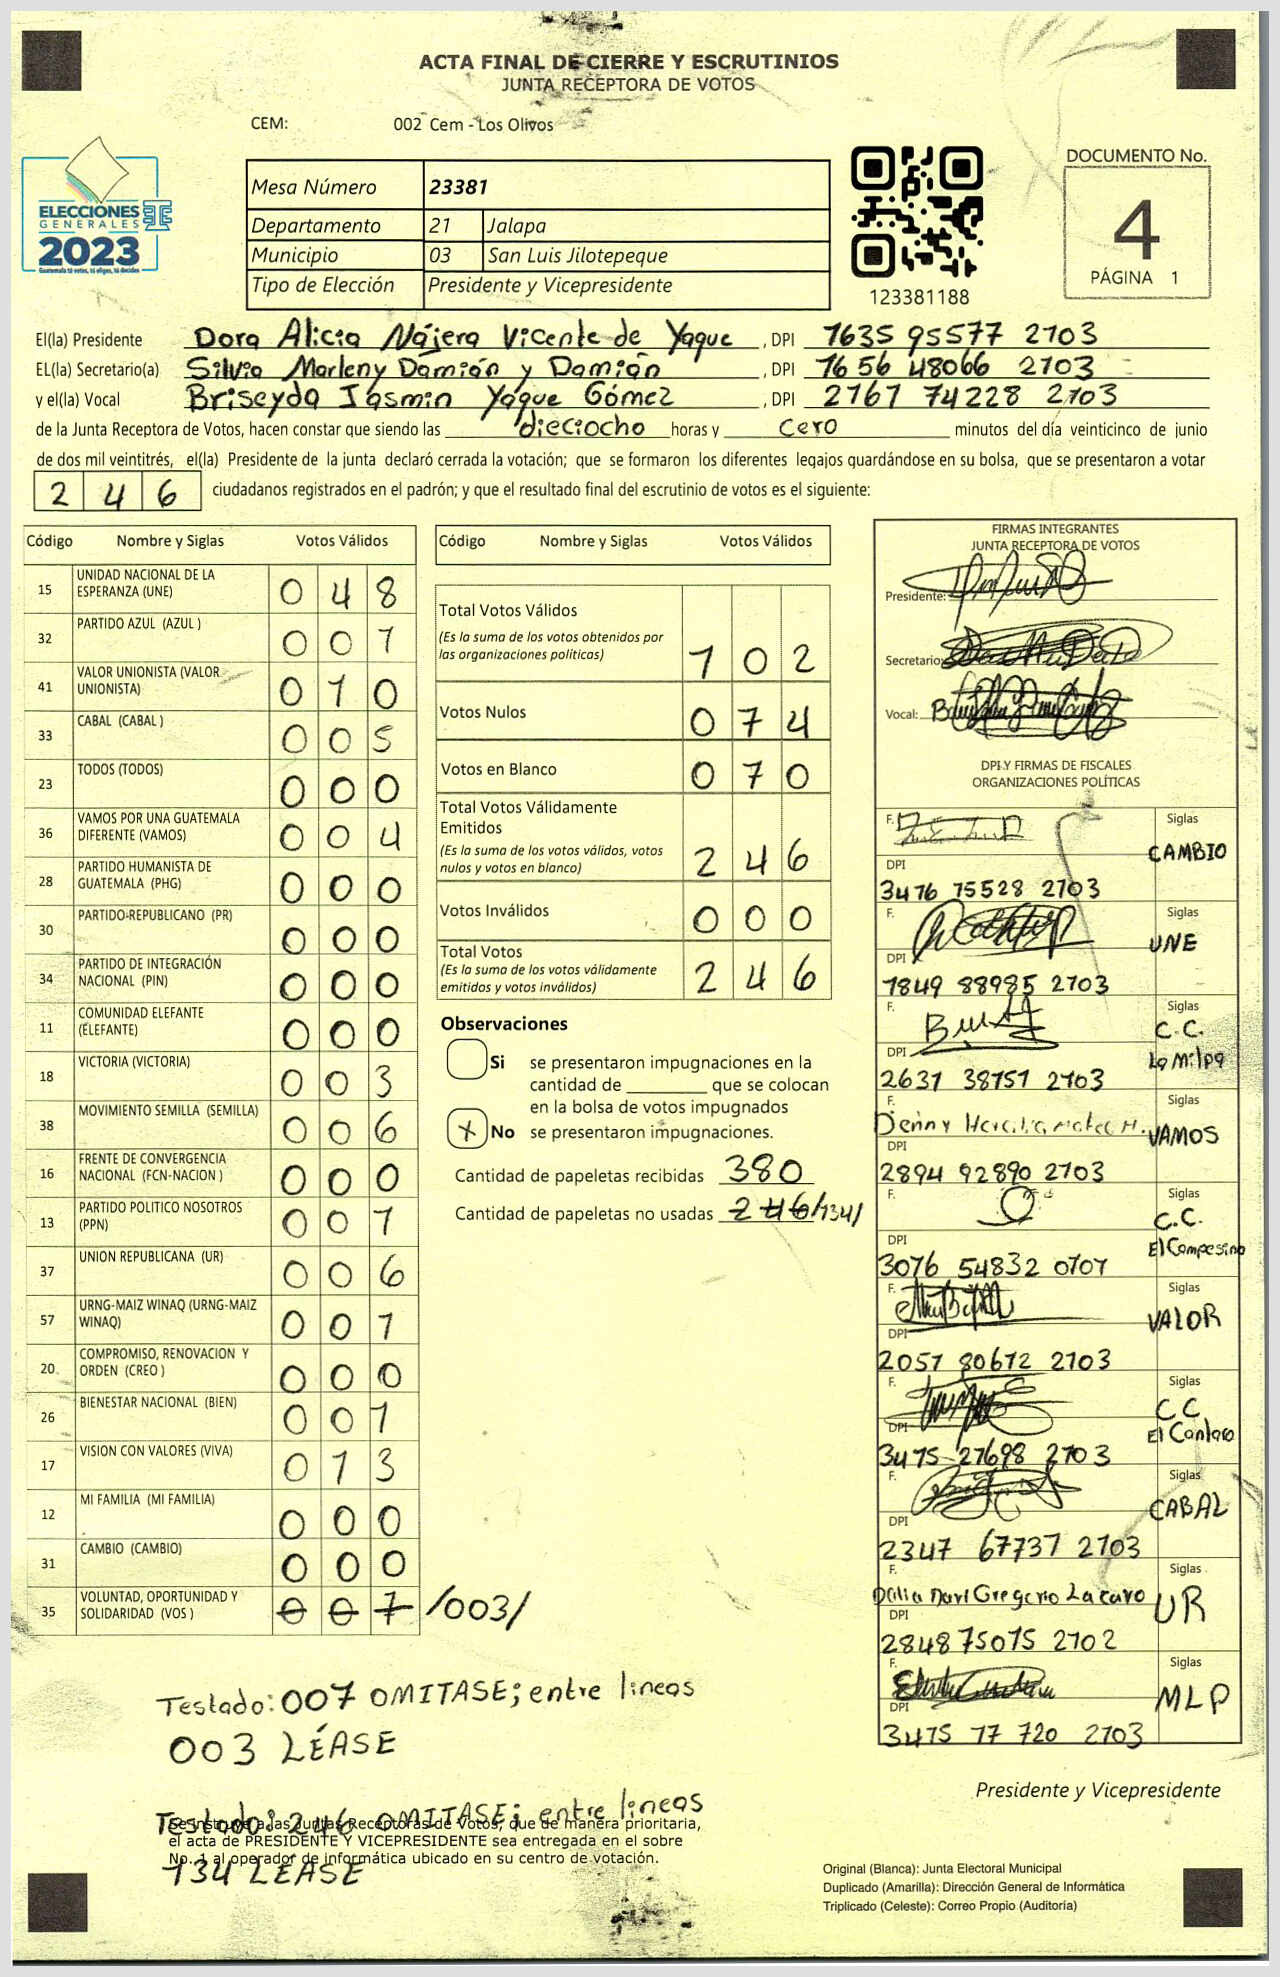 ACTA FINAL DE CIERRE Y ESCRUTINIOS
JUNTA RECEPTORA DE VOTOS
CEM: 002 Cem - Los Olivos
ELECCIONES
GENERALES
2023
Guatemala tú votas, tú eliges, tú decides
Mesa Número 23381
Departamento 21 Jalapa
Municipio 03 San Luis Jilotepeque
Tipo de Elección Presidente y Vicepresidente
123381188
DOCUMENTO No.
4
PÁGINA 1
El(la) Presidente Dora Alicia Nájera Vicente de Yaque, DPI 1635 95577 2103
EL(la) Secretario(a) Silvia Marleny Damián y Damián, DPI 1656 48066 2103
y el(la) Vocal Briseyda Jasmin Yaque Gómez, DPI 2767 74228 2103
de la Junta Receptora de Votos, hacen constar que siendo las dieciocho horas y cero minutos del día veinticinco de junio
de dos mil veintitrés, el(la) Presidente de la junta declaró cerrada la votación; que se formaron los diferentes legajos guardándose en su bolsa, que se presentaron a votar
2 4 6 ciudadanos registrados en el padrón; y que el resultado final del escrutinio de votos es el siguiente:
Código Nombre y Siglas Votos Válidos
15 UNIDAD NACIONAL DE LA ESPERANZA (UNE) 0 4 8
32 PARTIDO AZUL (AZUL ) 0 0 1
41 VALOR UNIONISTA (VALOR UNIONISTA) 0 1 0
33 CABAL (CABAL ) 0 0 5
23 TODOS (TODOS) 0 0 0
36 VAMOS POR UNA GUATEMALA DIFERENTE (VAMOS) 0 0 4
28 PARTIDO HUMANISTA DE GUATEMALA (PHG) 0 0 0
30 PARTIDO-REPUBLICANO (PR) 0 0 0
34 PARTIDO DE INTEGRACIÓN NACIONAL (PIN) 0 0 0
11 COMUNIDAD ELEFANTE (ELEFANTE) 0 0 0
18 VICTORIA (VICTORIA) 0 0 3
38 MOVIMIENTO SEMILLA (SEMILLA) 0 0 6
16 FRENTE DE CONVERGENCIA NACIONAL (FCN-NACION ) 0 0 0
13 PARTIDO POLITICO NOSOTROS (PPN) 0 0 1
37 UNION REPUBLICANA (UR) 0 0 6
57 URNG-MAIZ WINAQ (URNG-MAIZ WINAQ) 0 0 1
20 COMPROMISO, RENOVACION Y ORDEN (CREO ) 0 0 0
26 BIENESTAR NACIONAL (BIEN) 0 0 1
17 VISION CON VALORES (VIVA) 0 1 3
12 MI FAMILIA (MI FAMILIA) 0 0 0
31 CAMBIO (CAMBIO) 0 0 0
35 VOLUNTAD, OPORTUNIDAD Y SOLIDARIDAD (VOS ) 0 0 7 /003/
Código Nombre y Siglas Votos Válidos
Total Votos Válidos
(Es la suma de los votos obtenidos por
las organizaciones políticas) 1 0 2
Votos Nulos 0 7 4
Votos en Blanco 0 7 0
Total Votos Válidamente
Emitidos
(Es la suma de los votos válidos, votos
nulos y votos en blanco) 2 4 6
Votos Inválidos 0 0 0
Total Votos
(Es la suma de los votos válidamente
emitidos y votos inválidos) 2 4 6
Observaciones
Si se presentaron impugnaciones en la
cantidad de ________ que se colocan
en la bolsa de votos impugnados
X No se presentaron impugnaciones.
Cantidad de papeletas recibidas 380
Cantidad de papeletas no usadas 246 /134/
FIRMAS INTEGRANTES
JUNTA RECEPTORA DE VOTOS
Presidente:
Secretario:
Vocal:
DPI Y FIRMAS DE FISCALES
ORGANIZACIONES POLÍTICAS
F. Siglas CAMBIO
DPI 3476 75528 2103
F. Siglas UNE
DPI 1849 88985 2103
F. Siglas C.C. La Milpa
DPI 2631 38151 2103
F. Siglas VAMOS
DPI 2894 92890 2103
F. Siglas C.C. El Campesino
DPI 3076 54832 0707
F. Siglas VALOR
DPI 2057 80672 2103
F. Siglas C.C El Cantaro
DPI 3475 27698 2103
F. Siglas CABAL
DPI 2347 67737 2103
Siglas UR
DPI 2848 75075 2102
F. Siglas MLP
DPI 3475 77 720 2103
Testado: 007 OMITASE; entre lineas
003 LÉASE
Testado: 246 OMITASE; entre lineas
134 LEASE
Se instruye a las Juntas Receptoras de Votos, que de manera prioritaria,
el acta de PRESIDENTE Y VICEPRESIDENTE sea entregada en el sobre
No. 1 al operador de informática ubicado en su centro de votación.
Presidente y Vicepresidente
Original (Blanca): Junta Electoral Municipal
Duplicado (Amarilla): Dirección General de Informática
Triplicado (Celeste): Correo Propio (Auditoría)